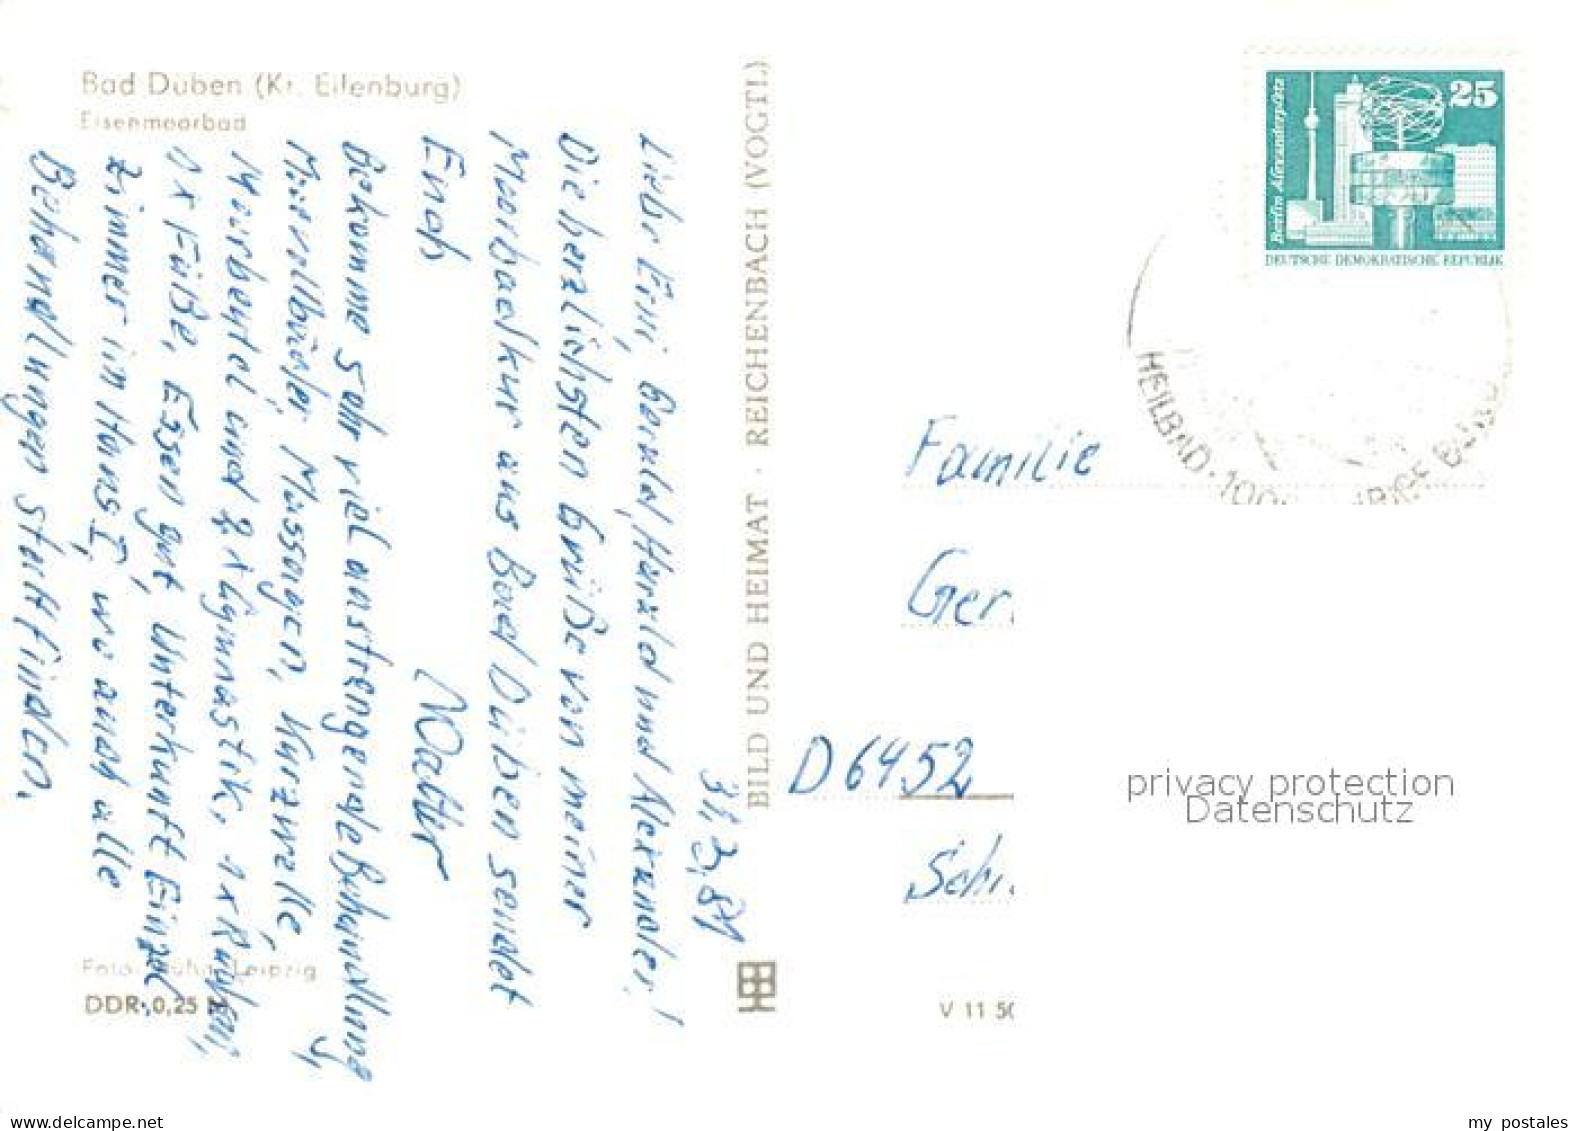 Bad Düben (Kr. Eilenburg)
Eisenmoorbad
31.3.81
Liebe Erni, Gerald, Harald und Alexander!
Die herzlichsten Grüße von meiner
Moorbadkur aus Bad Düben sendet
Euch
Walter
Bekomme sehr viel anstrengende Behandlung
Moorvollbäder, Massagen, Kurzwelle,
Moorbeutel und 2x Gymnastik, 1x Rücken,
1x Füße, Essen gut, Unterkunft Einzel
Zimmer im Haus I, wo auch alle
Behandlungen stattfinden.
Foto: Leipzig
DDR 0,25 M
BILD UND HEIMAT · REICHENBACH (VOGTL)
V 11 50
25
Berlin Alexanderplatz
DEUTSCHE DEMOKRATISCHE REPUBLIK
HEILBAD · 100
Familie
Ger
D 6452
Sch
privacy protection
Datenschutz
www.delcampe.net
my_postales